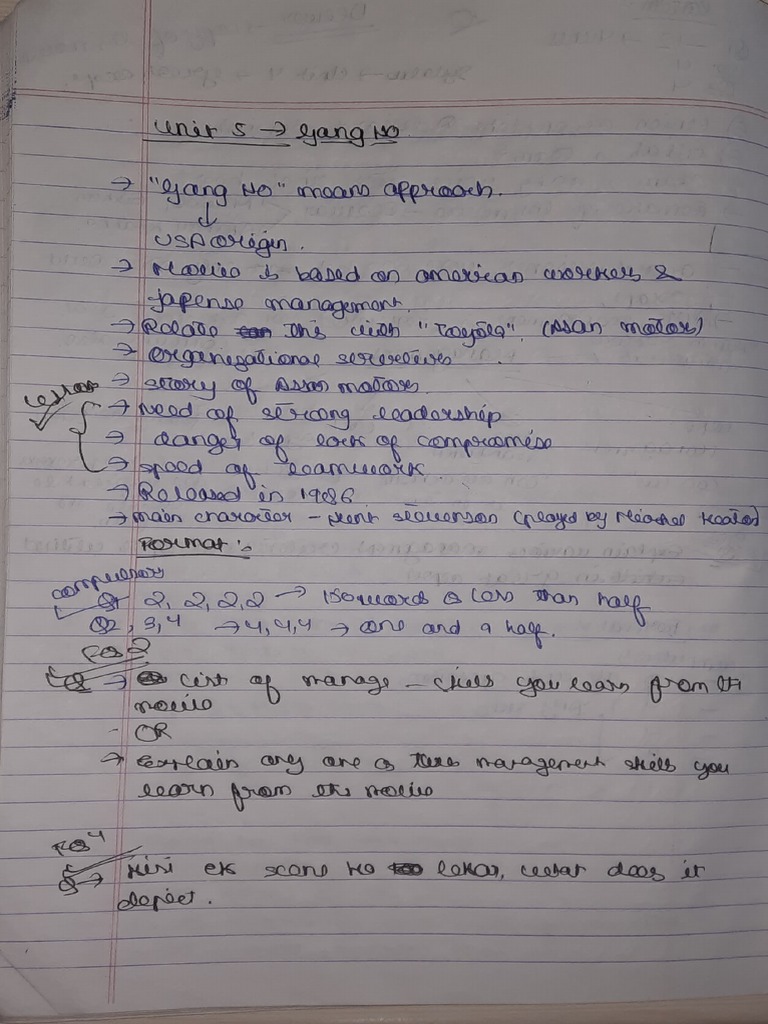 Unit 5 → Gang Ho
→ "Gang Ho" means approach.
↓
USA origin.
→ Movie is based on american workers &
japense management.
→ Relate this with "Toyota". (Assan motors)
→ organizational
→ story of Assan motors.
→ Need of strong leadership
→ danger of lack of compromise
→ speed of teamwork
→ Released in 1986
→ main character - (played by Michael Keaton)
Format :-
compulsory
Q1 2, 2, 2, 2 → 150 words & less than half
Q2, 3, 4 → 4, 4, 4 → one and a half.
Q → list of manage - skills you learn from the
movie
- OR
→ Explain any one or two management skills you
learn from the movie
Q → kisi ek scene ko lekar, what does it
depict.